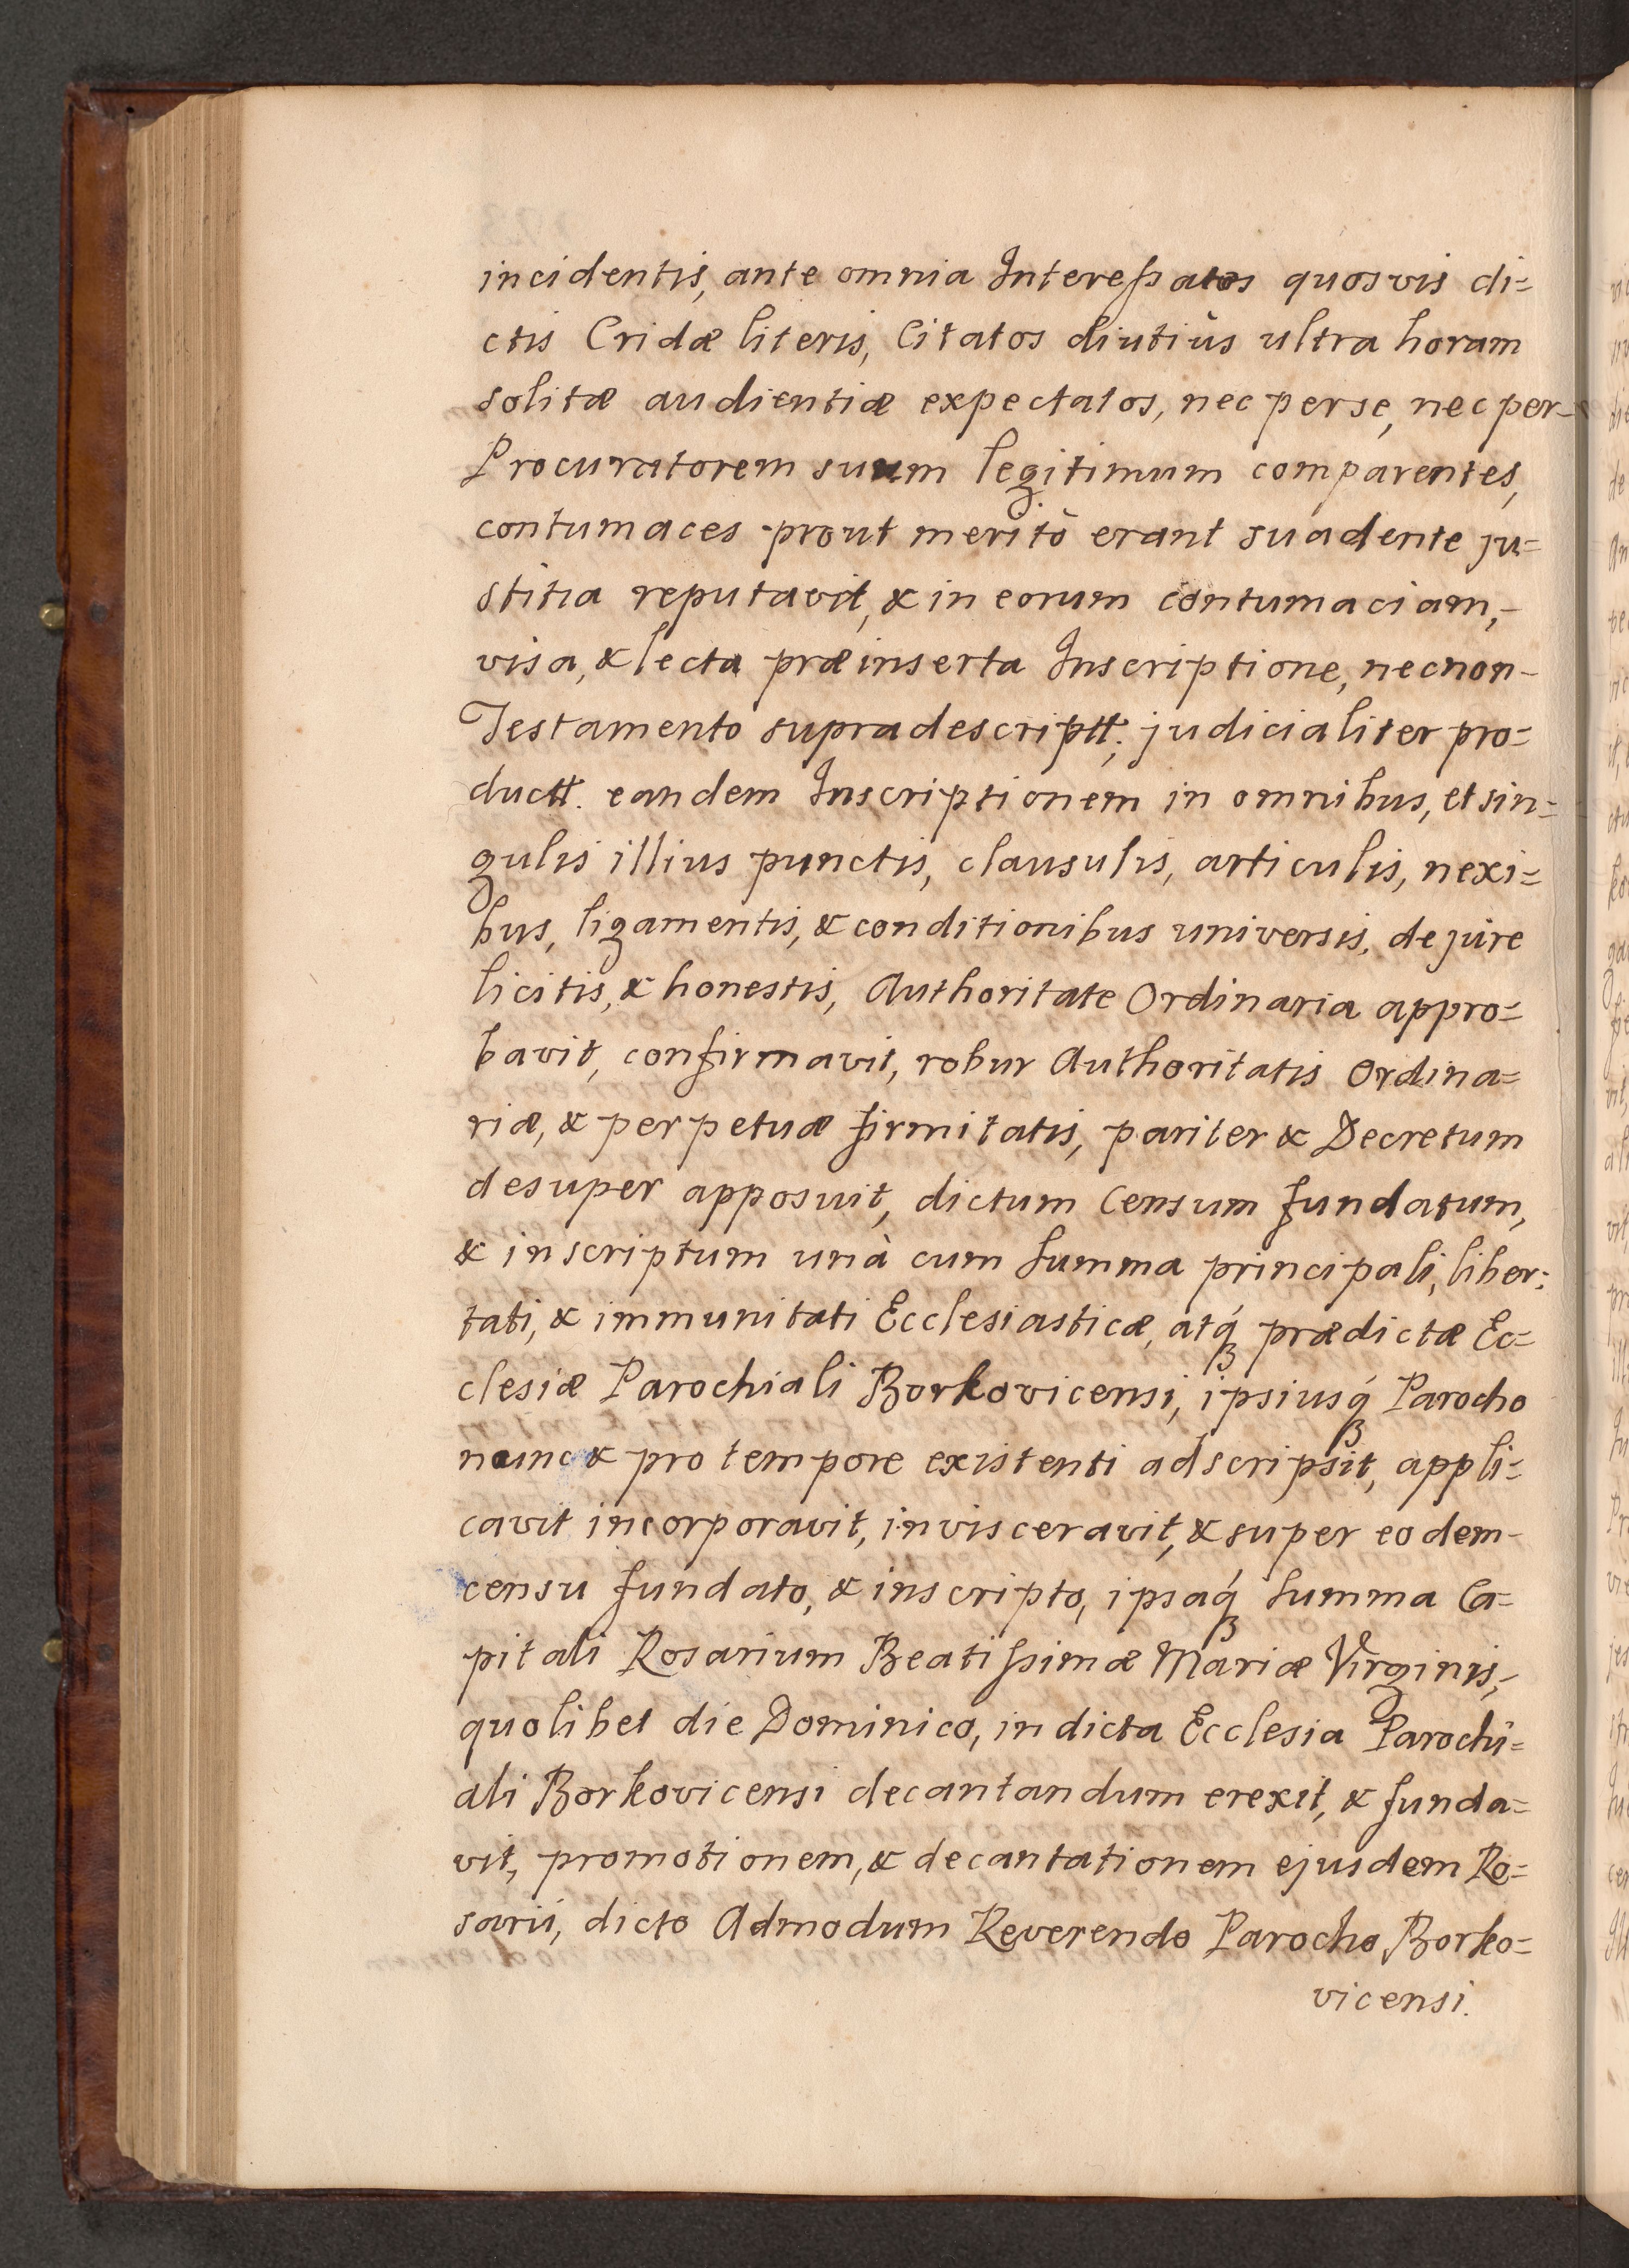 incidentis, ante omnia Interessatos quosvis di=
ctis Cridæ literis, Citatos diutiùs ultra horam
solitæ audientiæ expectatos, nec per se, nec per-
Procuratorem suum legitimum comparentes,
contumaces prout meritò erant suadente ju=
stitia reputavit, & in eorum contumaciam,-
visa, & lecta præinserta Inscriptione, necnon-
Testamento supradescriptt. judicialiter pro=
ductt. eandem Inscriptionem in omnibus, et sin=
gulis illius punctis, clausulis, articulis, nexi=
bus, ligamentis, & conditionibus universis, de jure
licitis, & honestis, Authoritate Ordinaria appro=
bavit, confirmavit, robur Authoritatis Ordina=
riæ, & perpetuæ firmitatis, pariter & Decretum
desuper apposuit, dictum Censum fundatum,
& inscriptum unà cum summa principali, liber=
tati, & immunitati Ecclesiasticæ, atq́ꝫ prædictæ Ec=
clesiæ Parochiali Borkovicensi, ipsiusq́ꝫ Parocho
nunc & pro tempore existenti adscripsit, appli=
cavit incorporavit, invisceravit, & super eodem-
censu fundato, & inscripto, ipsaq́ꝫ summa Ca=
pitali Rosarium Beatissimæ Mariæ Virginis,-
quolibet die Dominico, in dicta Ecclesia Parochi=
ali Borkovicensi decantandum erexit, & funda=
vit, promotionem, & decantationem ejusdem Ro=
sarii, dicto Admodum Reverendo Parocho Borko=
vicensi.